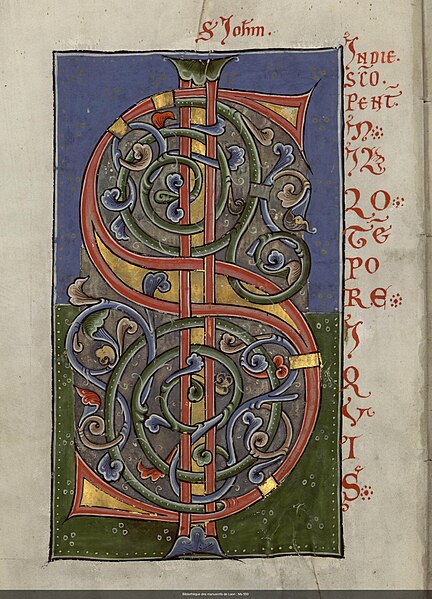 S Iohm.
INDIE
SCO.
PENT.
IN
IL
LO
TĒ
PO
RE
S
I
Q
V
I
S
Bibliothèque des manuscrits de Laon ; Ms